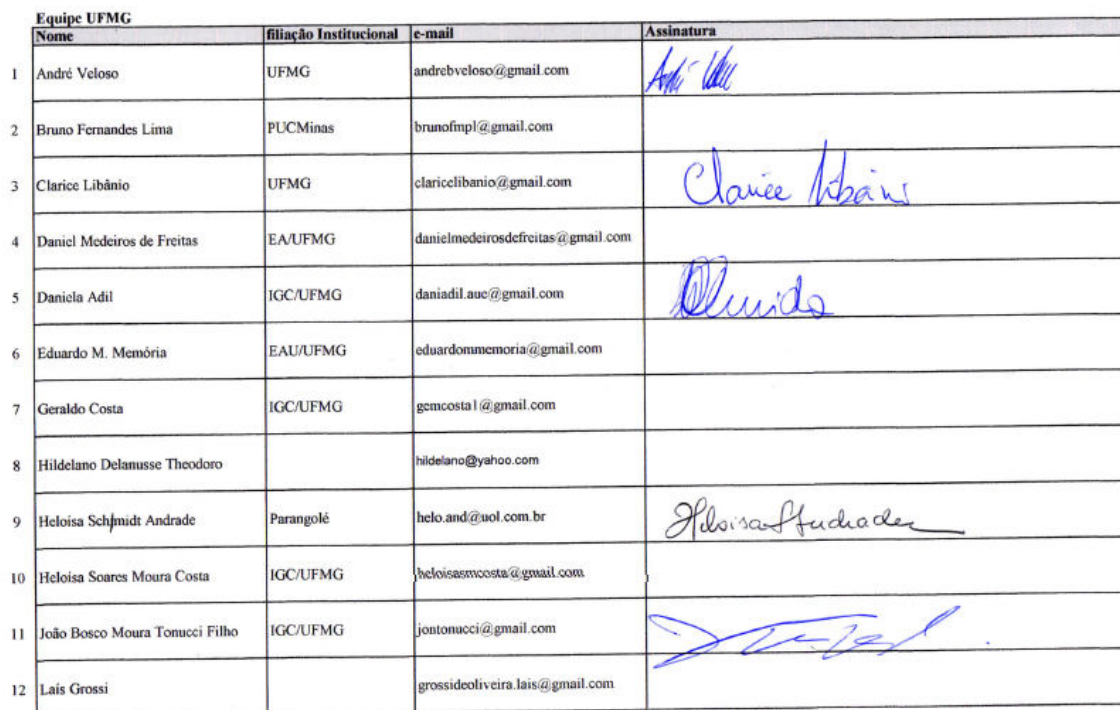 Equipe UFMG
Nome filiação Institucional e-mail Assinatura
1 André Veloso UFMG andrebveloso@gmail.com
2 Bruno Fernandes Lima PUCMinas brunofmpl@gmail.com
3 Clarice Libânio UFMG claricelibanio@gmail.com Clarice Libânio
4 Daniel Medeiros de Freitas EA/UFMG danielmedeirosdefreitas@gmail.com
5 Daniela Adil IGC/UFMG daniadil.aue@gmail.com
6 Eduardo M. Memória EAU/UFMG eduardommemoria@gmail.com
7 Geraldo Costa IGC/UFMG gemcosta1@gmail.com
8 Hildelano Delanusse Theodoro hildelano@yahoo.com
9 Heloisa Schmidt Andrade Parangolé helo.and@uol.com.br Heloisa Andrade
10 Heloisa Soares Moura Costa IGC/UFMG heloisasmcosta@gmail.com
11 João Bosco Moura Tonucci Filho IGC/UFMG jontonucci@gmail.com
12 Laís Grossi grossideoliveira.lais@gmail.com